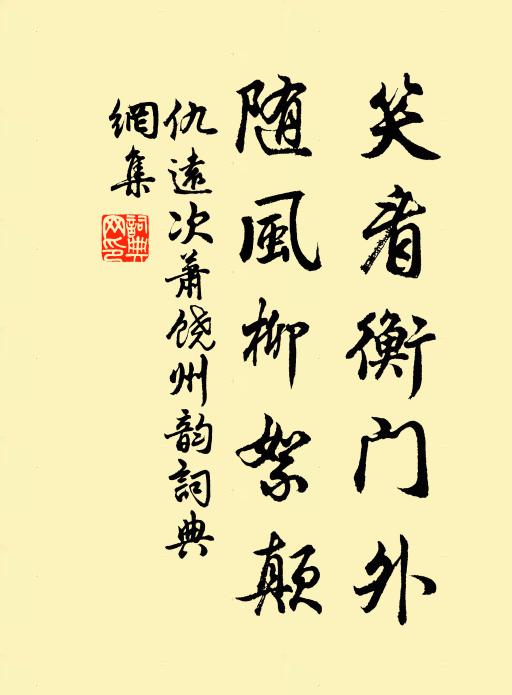 笑看衡门外
随風柳絮顛
仇遠次蕭饶州韵詞典
網集
詞典
网印